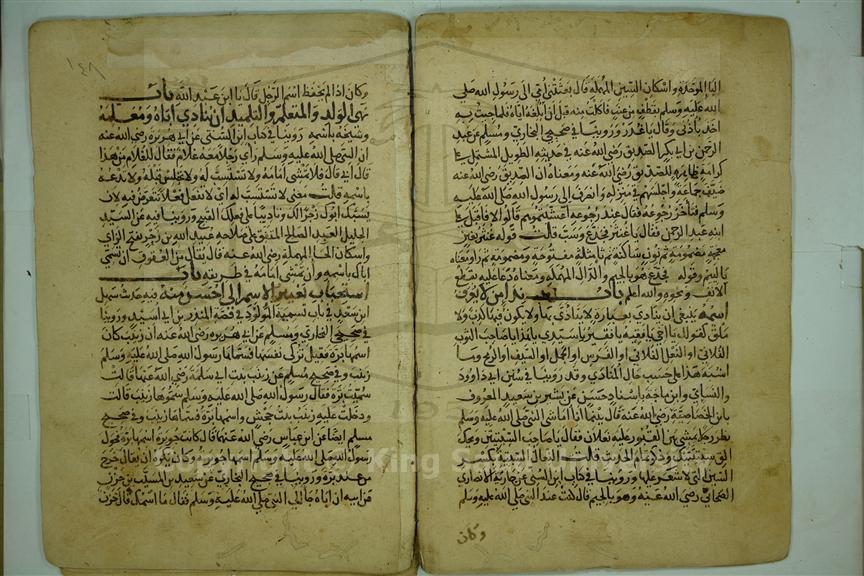 البا الموحدة واسكان السين المهملة قال بعثتني امي الى رسول الله صلى
الله عليه وسلم بقطف من عنب فاكلت منه قبل ان ابلغه اياه فلما جيت به
اخذ باذني وقال يا غدر وروينا في صحيحي البخاري ومسلم عن عبد
الرحمن بن ابي بكر الصديق رضي الله عنه في حديثه الطويل المشتمل على
كرامة ظاهرة للصديق رضي الله عنه ومعناه ان الصديق رضي الله عنه
ضيف جماعة واجلسهم في منزله وانصرف الى رسول الله صلى الله عليه
وسلم فتاخر رجوعه فقال عند رجوعه اعشيتموهم قالوا لا فاقبل على
ابنه عبد الرحمن فقال يا غنثر فجدع وسب قلت قوله غنثر بغين
معجمة مضمومة ثم نون ساكنة ثم ثا مثلثة مفتوحة ومضمومة ثم را ومعناه
يا لئيم وقوله فجدع هو بالجيم والدال المهملة ومعناه دعا عليه بقطع
الانف ونحوه والله اعلم باب نداء من لا يعرف
اسمه ينبغي ان ينادى بعبارة لا يتاذى بها ولا يكون فيها كذب ولا
ملق كقولك يا اخي يا فقيه يا فقير يا سيدي يا هذا يا صاحب الثوب
الفلاني او النعل الفلاني او الفرس او الجمل او السيف او الرمح وما
اشبه هذا على حسب حال المنادي وقد روينا في سنن ابي داوود
والنسائي وابن ماجة باسناد حسن عن بشير بن سعيد المعروف
بابن الخصاصية رضي الله عنه قال بينما انا اماشي النبي صلى الله عليه وسلم
نظر رجل يمشي بين القبور عليه نعلان فقال يا صاحب السبتيتين ويحك
الق سبتيتيك وذكر تمام الحديث قلت النعال السبتية بكسر
السين التي لا شعر عليها وروينا في كتاب ابن السني عن جارية الانصاري
الصحابي رضي الله عنه وهو بالجيم قال كنت عند النبي صلى الله عليه وسلم
وكان
١٤٨
وكان اذا لم يحفظ اسم الرجل قال يا ابن عبد الله باب
نهي الولد والمتعلم والتلميذ ان ينادي اباه ومعلمه
وشيخه باسمه روينا في كتاب ابن السني عن ابي هريرة رضي الله عنه
ان النبي صلى الله عليه وسلم راى رجلا معه غلام فقال للغلام من هذا
قال ابي قال فلا تمش امامه ولا تستسب له ولا تجلس قبله ولا تدعه
باسمه قلت معنى لا تستسب له اي لا تفعل فعلا تتعرض فيه لان
يسبك ابوك زجرا لك وتاديبا على فعلك القبيح وروينا فيه عن السيد
الجليل العبد الصالح المتفق على صلاحه عبيد الله بن زحر بفتح الزاي
واسكان الحا المهملة رضي الله عنه قال يقال من العقوق ان تسمي
اباك باسمه وان تمشي امامه في طريقه باب
استحباب تغيير الاسم الى احسن منه فيه حديث سهل
ابن سعد في باب تسمية المولود في قصة المنذر بن ابي اسيد وروينا
في صحيحي البخاري ومسلم عن ابي هريرة رضي الله عنه ان زينب كان
اسمها برة فقيل تزكي نفسها فسماها رسول الله صلى الله عليه وسلم
زينب وفي صحيح مسلم عن زينب بنت ابي سلمة رضي الله عنها قالت
سميت برة فقال رسول الله صلى الله عليه وسلم سموها زينب قالت
ودخلت عليه زينب بنت جحش واسمها برة فسماها زينب وفي صحيح
مسلم ايضا عن ابن عباس رضي الله عنهما قال كانت جويرية اسمها برة فحول
رسول الله صلى الله عليه وسلم اسمها جويرية وكان يكره ان يقال خرج
من عند برة وروينا في صحيح البخاري عن سعيد بن المسيب بن حزن
عن ابيه ان اباه جا الى النبي صلى الله عليه وسلم فقال ما اسمك قال حزن